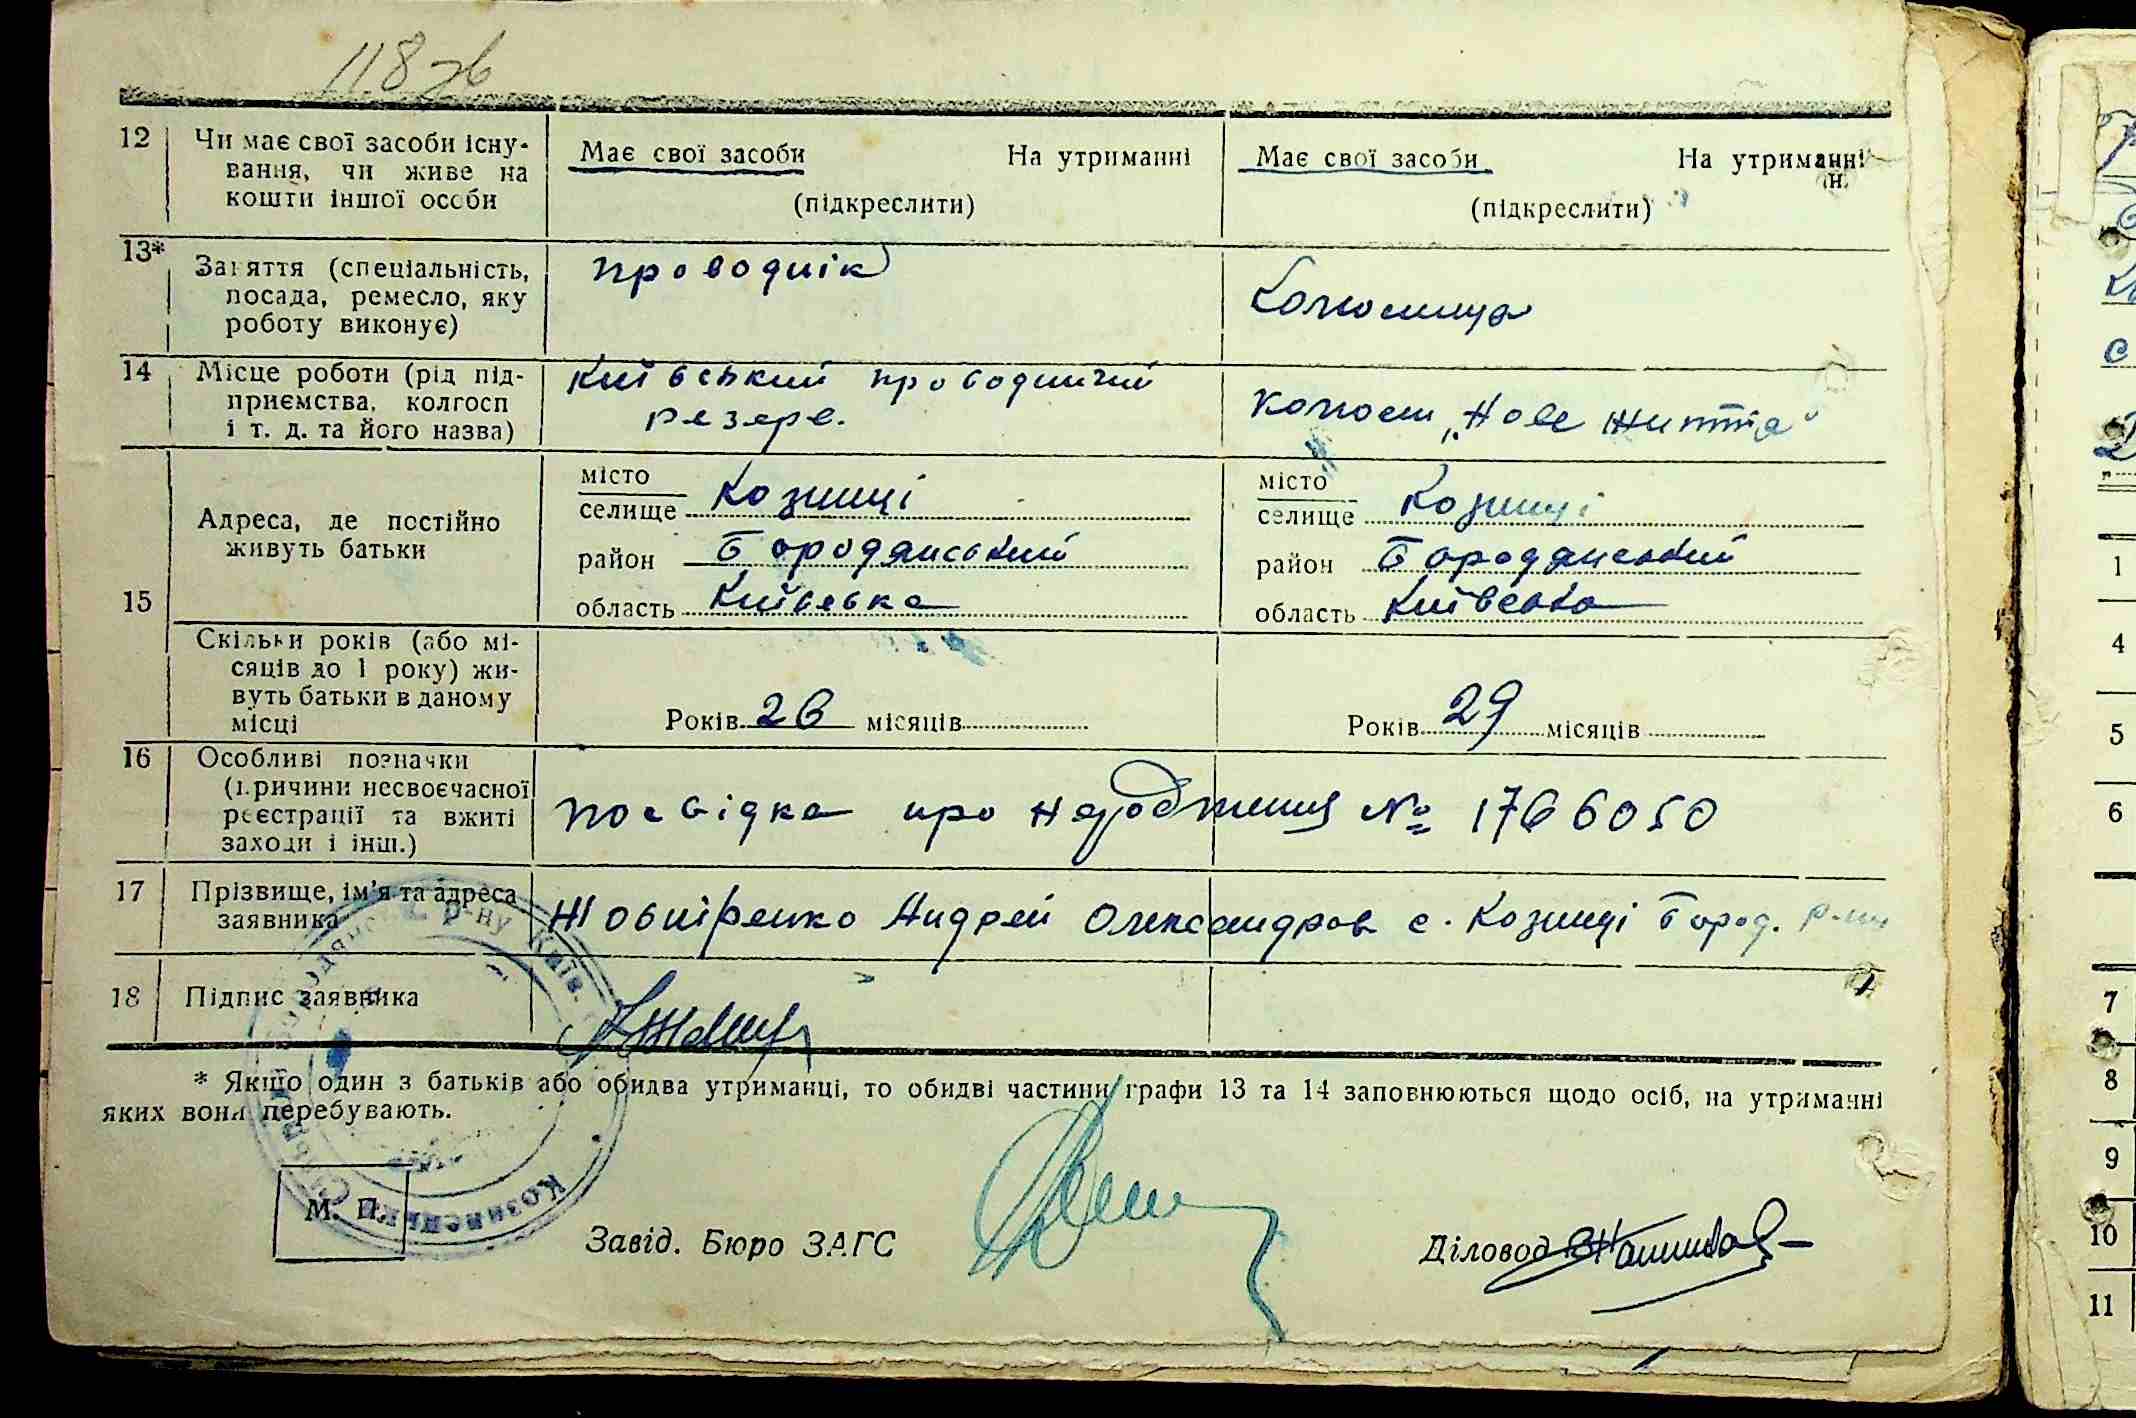 118 зв
12 Чи має свої засоби існу-
вання, чи живе на
кошти іншої особи
Має свої засоби На утриманні
(підкреслити)
Має свої засоби На утриманні
(підкреслити)
13* Заняття (спеціальність,
посада, ремесло, яку
роботу виконує)
проводнік
Колгосниця
14 Місце роботи (рід під-
приємства, колгосп
і т. д. та його назва)
Київський проводничий
резерв.
колгосп „Нове життя"
15 Адреса, де постійно
живуть батьки
місто
селище Козинці
район Бородянський
область Київська
місто
селище Козинці
район Бородянський
область Київська
Скільки років (або мі-
сяців до 1 року) жи-
вуть батьки в даному
місці
Років 26 місяців
Років 29 місяців
16 Особливі позначки
(причини несвоєчасної
реєстрації та вжиті
заходи і інш.)
посвідка про народження № 1766050
17 Прізвище, ім'я та адреса
заявника
Жовніренко Андрей Олександров с. Козинці Бород. р-ну
18 Підпис заявника
* Якщо один з батьків або обидва утриманці, то обидві частини графи 13 та 14 заповнюються щодо осіб, на утриманні
яких вони перебувають.
М. П.
Завід. Бюро ЗАГС
Діловод
р-ну Київ.
1
4
5
6
7
8
9
10
11